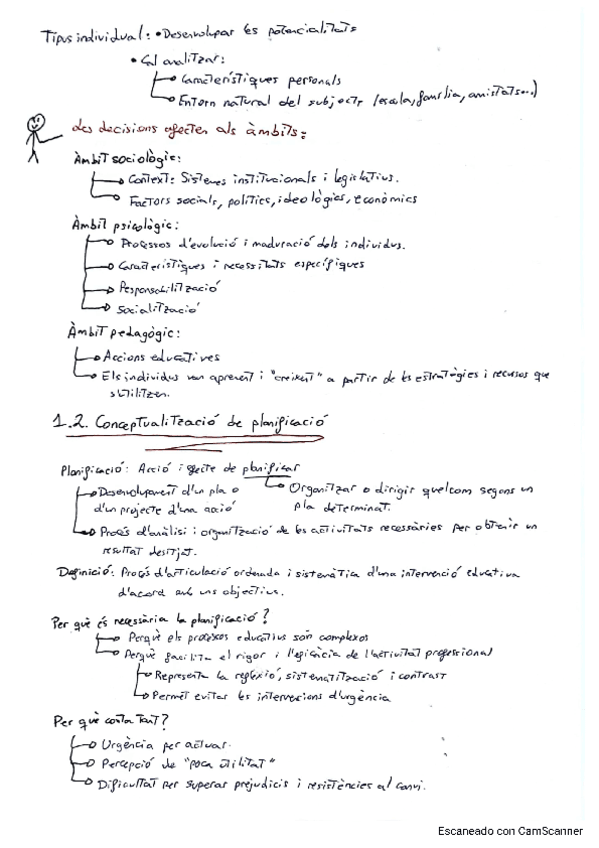 Tipus individual: • Desenvolupar les potencialitats
• Cal analitzar:
Característiques personals
Entorn natural del subjecte (escola, família, amistats...)
Les decisions afecten als àmbits:
Àmbit sociològic:
Context: Sistemes institucionals i legislatius.
Factors socials, polítics, ideològics, econòmics
Àmbit psicològic:
Processos d'evolució i maduració dels individus.
Característiques i necessitats específiques
Responsabilització
Socialització
Àmbit pedagògic:
Accions educatives
Els individus van aprenent i "creixent" a partir de les estratègies i recursos que
s'utilitzen.
1.2. Conceptualització de planificació
Planificació: Acció i efecte de planificar
Desenvolupament d'un pla o
d'un projecte d'una acció
Organitzar o dirigir quelcom segons un
pla determinat.
Procés d'anàlisi i organització de les activitats necessàries per obtenir un
resultat desitjat.
Definició: Procés d'articulació ordenada i sistemàtica d'una intervenció educativa
d'acord amb uns objectius.
Per què és necessària la planificació?
Perquè els processos educatius són complexos
Perquè facilita el rigor i l'eficàcia de l'activitat professional
Representa la reflexió, sistematització i contrast
Permet evitar les intervencions d'urgència
Per què costa tant?
Urgència per actuar.
Percepció de "poca utilitat"
Dificultat per superar prejudicis i resistències al canvi.
Escaneado con CamScanner